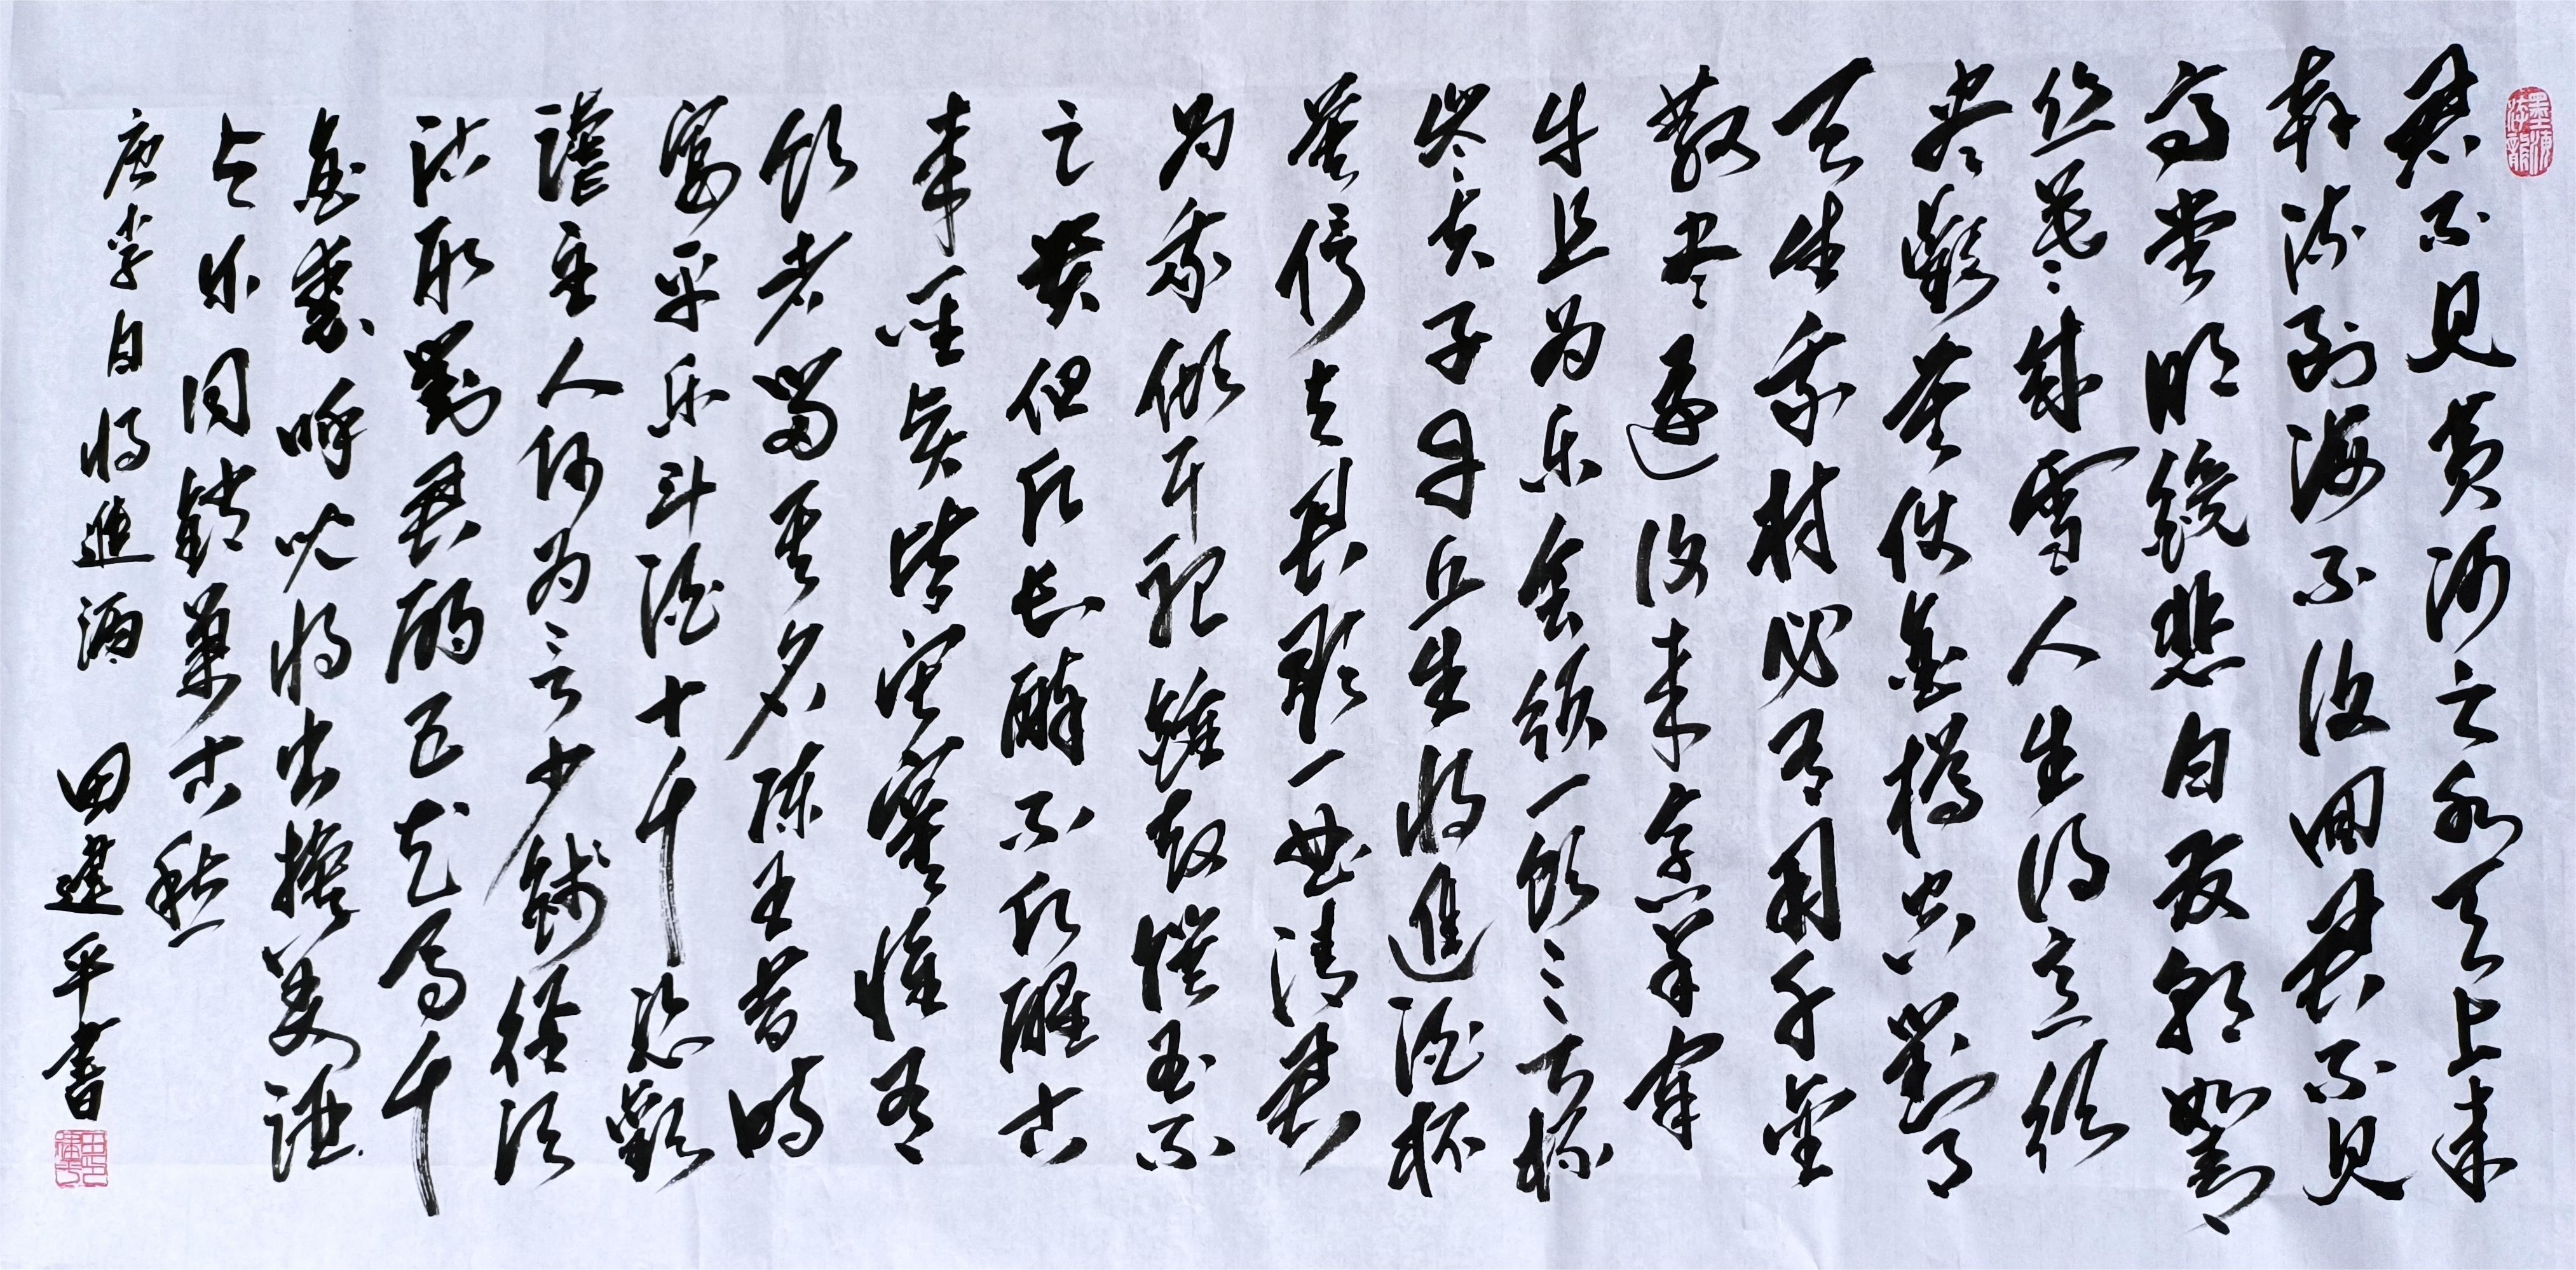 墨海游龍
君不见黄河之水天上来
奔流到海不復回君不见
高堂明鏡悲白发朝如青
丝暮成雪人生得意须
尽歡莫使金樽空對月
天生我材必有用千金
散尽還復来烹羊宰
牛且为乐会须一饮三百杯
岑夫子丹丘生将進酒杯
莫停与君歌一曲请君
为我倾耳听鐘鼓馔玉不
足贵但愿长醉不愿醒古
来圣贤皆寂寞惟有
饮者留其名陈王昔时
宴平乐斗酒十千恣歡
謔主人何为言少錢径须
沽取對君酌五花馬千
金裘呼儿将出換美酒
与尔同銷萬古愁
唐李白将進酒 田建平書
田建平印